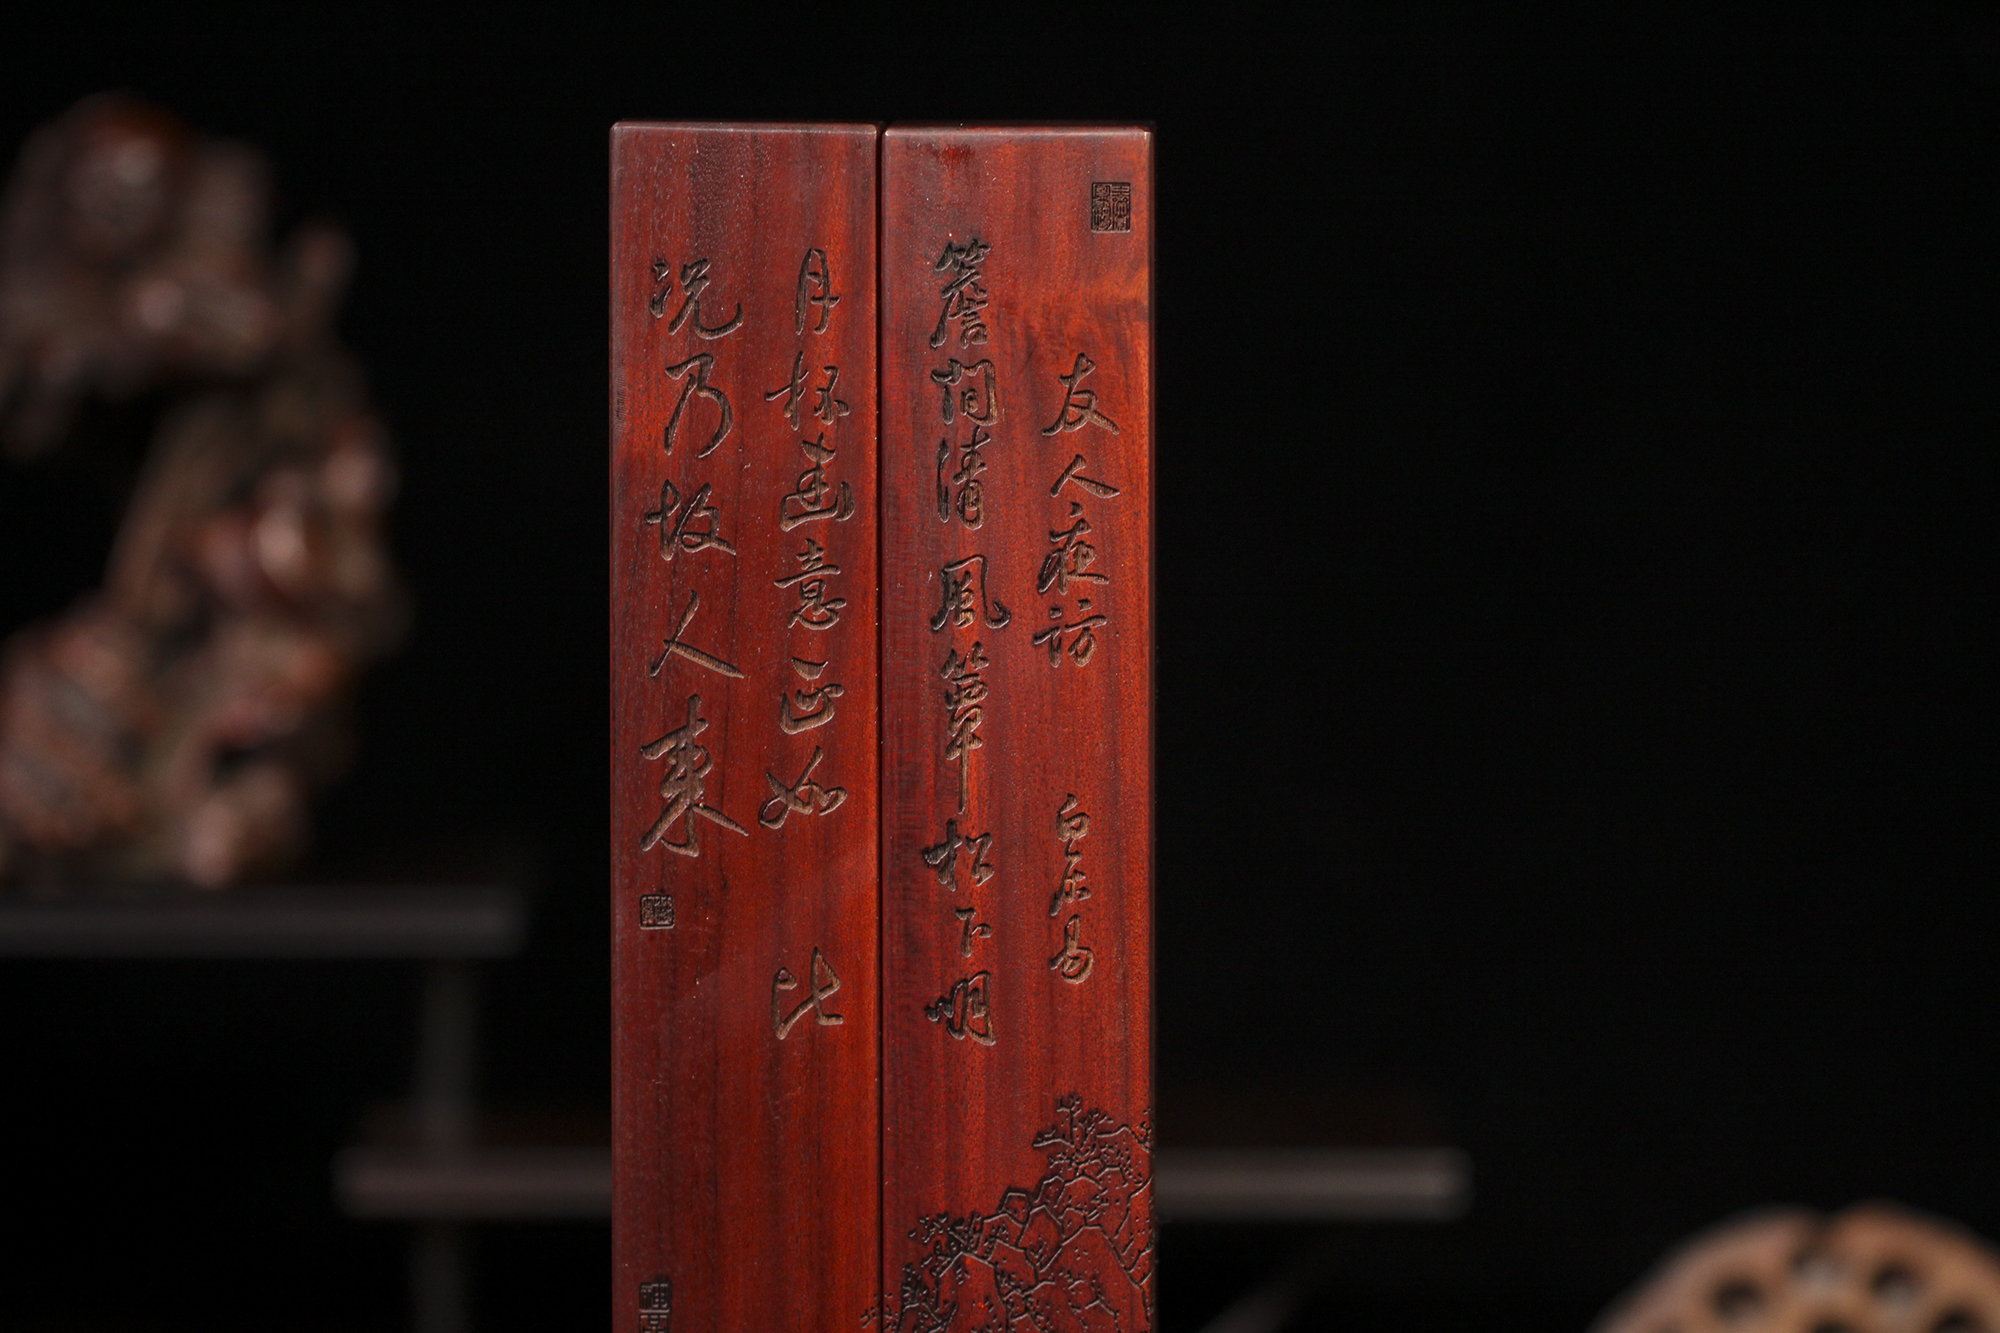 友人夜访 白乐易
簷間清風簟松下明
月杯幽意正如比
况乃故人来